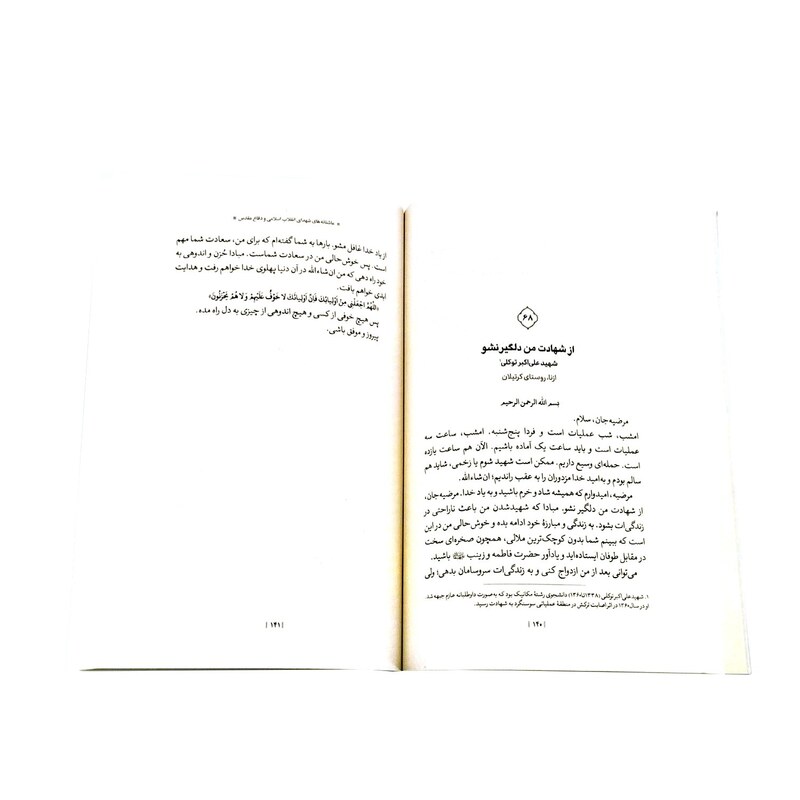 ۶۸
از شهادت من دلگیر نشو
شهید علی‌اکبر توکلی¹
ازنا، روستای کرتیلان
بسم الله الرحمن الرحیم
مرضیه‌جان، سلام.
امشب، شب عملیات است و فردا پنج‌شنبه. امشب، ساعت سه
عملیات است و باید ساعت یک آماده باشیم. الآن هم ساعت یازده
است. حمله‌ای وسیع داریم. ممکن است شهید شوم یا زخمی، شاید هم
سالم بودم و به‌امید خدا مزدوران را به عقب راندیم؛ ان‌شاءالله.
مرضیه، امیدوارم که همیشه شاد و خرم باشید و به یاد خدا. مرضیه‌جان،
از شهادت من دلگیر نشو. مبادا که شهیدشدن من باعث ناراحتی در
زندگی‌ات بشود. به زندگی و مبارزهٔ خود ادامه بده و خوش‌حالی من در این
است که ببینم شما بدون کوچک‌ترین ملالی، همچون صخره‌ای سخت
در مقابل طوفان ایستاده‌اید و یادآور حضرت فاطمه و زینب باشید.
می‌توانی بعد از من ازدواج کنی و به زندگی‌ات سروسامان بدهی؛ ولی
۱. شهید علی‌اکبر توکلی (۱۳۳۸تا۱۳۶۰) دانشجوی رشتهٔ مکانیک بود که به‌صورت داوطلبانه عازم جبهه شد.
او در سال ۱۳۶۰ در اثر اصابت ترکش در منطقهٔ عملیاتی سوسنگرد به شهادت رسید.
| ۱۴۰ |
* عاشقانه‌های شهدای انقلاب اسلامی و دفاع مقدس *
از یاد خدا غافل مشو. بارها به شما گفته‌ام که برای من، سعادت شما مهم
است. پس خوش‌حالی من در سعادت شماست. مبادا حُزن و اندوهی به
خود راه دهی که من ان‌شاءالله در آن دنیا پهلوی خدا خواهم رفت و هدایت
ابدی خواهم یافت.
«اللّهُمَّ اجْعَلْنی مِنْ اَوْلِیائِكَ فَاِنَّ اَوْلِیائَكَ لا خَوْفٌ عَلَیْهِمْ وَ لا هُمْ یَحْزَنُونَ»
پس هیچ خوفی از کسی و هیچ اندوهی از چیزی به دل راه مده.
پیروز و موفق باشی.
| ۱۴۱ |